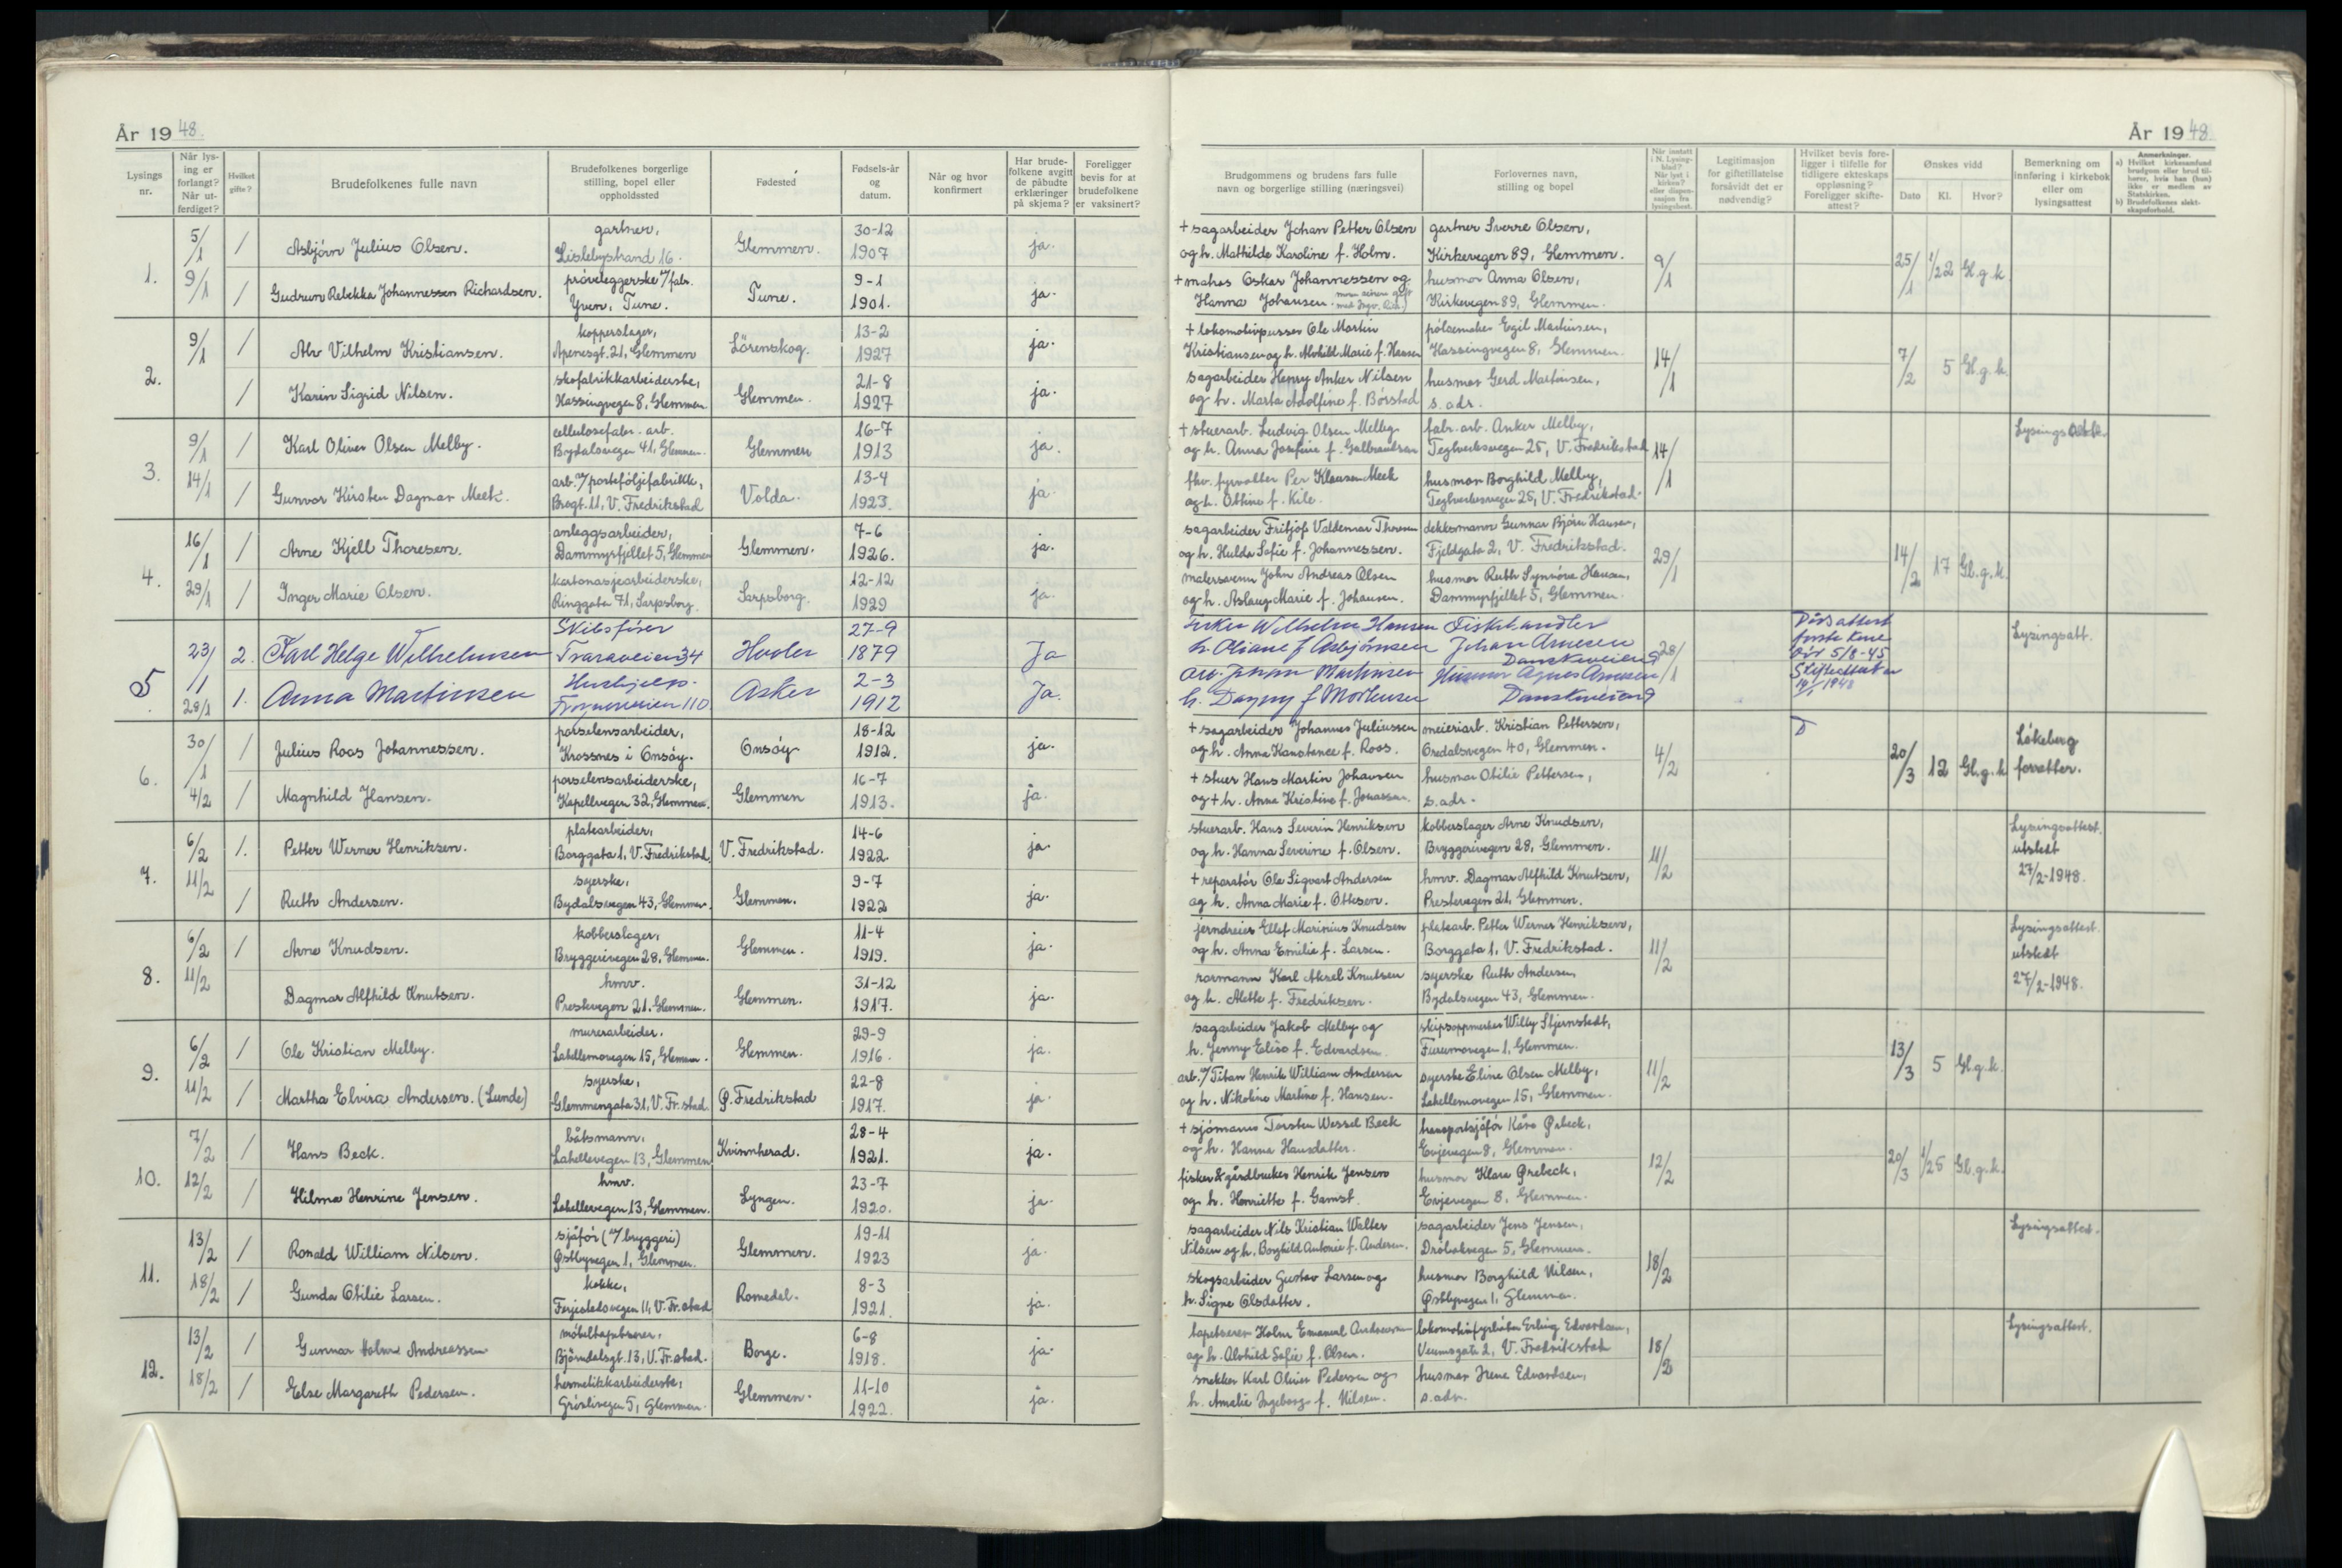 År 1948.
Lysings nr.
Når lysing er forlangt? Når utferdiget?
Hvilket gifte?
Brudefolkenes fulle navn
Brudefolkenes borgerlige stilling, bopel eller oppholdssted
Fødested
Fødsels-år og datum.
Når og hvor konfirmert
Har brudefolkene avgitt de påbudte erklæringer på skjema?
Foreligger bevis for at brudefolkene er vaksinert?
1.
5/1
9/1
1 Asbjörn Julius Olsen. gartner, Lislebystrand 16. Glemmen. 30-12 1907 ja.
1 Gudrun Rebekka Johannessen Richardsen. pröveleggerske v/fabr. Yven, Tune. Tune. 9-1 1901. ja.
2.
9/1
1 Alv Vilhelm Kristiansen. kopperslager, Apenesgt. 21, Glemmen Lörenskog. 13-2 1927 ja.
1 Karin Sigrid Nilsen. skofabrikkarbeiderske, Hassingvegen 8, Glemmen. Glemmen. 21-8 1927 ja.
3.
9/1
14/1
1 Karl Oliver Olsen Melby. cellulosefabr. arb. Bydalsvegen 41, Glemmen. Glemmen 16-7 1913 ja.
1 Gunvor Kirsten Dagmar Meek. arb. v/porteföljefabrikk, Brogt. 11, V. Fredrikstad Volda. 13-4 1923. ja.
4.
16/1
29/1
1 Arne Kjell Thoresen. anleggsarbeider, Dammyrfjellet 5, Glemmen Glemmen. 7-6 1926. ja.
1 Inger Marie Olsen. kartonasjearbeiderske, Ringgata 71, Sarpsborg. Sarpsborg. 12-12 1929 ja.
5
23/1
29/1
2. Karl Helge Wilhelmsen Traraveien 34 Hvaler 27-9 1879 Ja
1. Anna Martinsen Hushjelp. 110 Asker 2-3 1912 Ja.
6.
30/1
4/2
1 Julius Roos Johannessen. porselensarbeider, Krossnes i Onsöy. Onsöy 18-12 1912. ja.
1 Magnhild Hansen. porselensarbeiderske, Kapellvegen 32, Glemmen. Glemmen 16-7 1913. ja.
7.
6/2
11/2
1. Petter Werner Henriksen. platearbeider, Borggata 1, V. Fredrikstad. V. Fredrikstad. 14-6 1922. ja.
1 Ruth Andersen. syerske, Bydalsvegen 43, Glemmen. Glemmen. 9-7 1922 ja.
8.
6/2
11/2
1 Arne Knudsen. kobberslager, Bryggerivegen 28, Glemmen. Glemmen. 11-4 1919. ja.
Dagmar Alfhild Knutsen. hmv. Prestevegen 21. Glemmen. Glemmen. 31-12 1917. ja.
9.
6/2
11/2
1 Ole Kristian Melby. murerarbeider. Lahellemovegen 15, Glemmen. Glemmen. 29-9 1916. ja.
1 Martha Elvira Andersen. (Lunde) syerske, Glemmengata 31, V. Fr.stad. Ø. Fredrikstad 22-8 1917. ja.
10.
7/2
12/2
1 Hans Beck. båtsmann, Lahellevegen 13, Glemmen Kvinnherad. 28-4 1921. ja.
1 Hilma Henrine Jensen. hmv. Lahellevegen 13, Glemmen. Lyngen. 23-7 1920. ja
11.
13/2
18/2
1 Ronald William Nilsen. sjåför (v/bryggeri) Østbyvegen 1, Glemmen. Glemmen. 19-11 1923 ja.
1 Gunda Otilie Larsen. kokke, Ferjestedsvegen 11, V. Fr.stad Romedal. 8-3 1921. ja.
12.
13/2
18/2
1 Gunnar Holm Andreassen møbeltapetserer, Björndalsgt. 13, V. Fr.stad. Borge. 6-8 1918. ja.
1 Else Margareth Pedersen. hermetikkarbeiderske, Grislivegen 5, Glemmen. Glemmen. 11-10 1922. ja.
År 1948
Brudgommens og brudens fars fulle navn og borgerlige stilling (næringsvei)
Forlovernes navn, stilling og bopel
Når inntatt i N. Lysingsblad? Når lyst i kirken? eller dispensasjon fra lysingsbest.
Legitimasjon for giftetillatelse forsåvidt det er nødvendig?
Hvilket bevis foreligger i tilfelle for tidligere ekteskaps oppløsning? Foreligger skifteattest?
Ønskes vidd
Dato
Kl.
Hvor?
Bemerkning om innføring i kirkebok eller om lysingsattest
Anmerkninger.
a) Hvilket kirkesamfund brudgom eller brud tilhører, hvis han (hun) ikke er medlem av Statskirken.
b) Brudefolkenes slektskapsforhold.
+ sagarbeider Johan Petter Olsen og h. Mathilde Karoline f. Holm. gartner Sverre Olsen, Kirkevegen 89, Glemmen. 9/1 25/1 1/2 2 Gl.g.k
+ Oskar Johannessen og Hanna Johansen husmor Anna Olsen, Kirkevegen 89, Glemmen.
+ lokomotivpusser Ole Martin Kristiansen og h. Alvhild Marie f. Hansen pölsemaker Egil Martinsen, Hassingvegen 8, Glemmen. 14/1 7/2 5 Gl.g.k.
sagarbeider Henry Anker Nilsen og h. Marta Adolfine f. Börstad husmor Gerd Martinsen, s. adr.
+ stuerarb. Ludvig Olsen Melby og h. Anna Josefine f. Gulbrandsen fabr. arb. Anker Melby, Teglverksvegen 25, V. Fredrikstad 14/1 Lysingsattest.
fhv. fyrvokter Per Klausen Meek og h. Ottine f. Kile. husmor Borghild Melby, Teglverksvegen 25, V. Fredrikstad.
sagarbeider Fritjof Valdemar Thoresen og h. Hulda Sofie f. Johannessen. dekksmann Gunnar Björn Hansen, Fjeldgata 2, V. Fredrikstad. 29/1 14/2 17 Gl.g.k.
malersvenn John Andreas Olsen og h. Aslaug Marie f. Johansen. husmor Ruth Synnöve Hansen, Dammyrfjellet 5, Glemmen.
Fisker Wilhelm Hansen h. Oliane f Asbjørnsen Fiskehandler Johan Arnesen 28/1 Dødsattest første kone død 5/8-45 Skifteattest av 1948 Lysingsatt.
arb. Johan Martinsen h. Dagny f Mortensen Husmor Agnes Arnesen
+ sagarbeider Johannes Juliussen og h. Anna Konstanse f. Roos. meieriarb. Kristian Pettersen, Oredalsvegen 40, Glemmen. 4/2 20/3 12 Gl.g.k Lökeberg forretter.
+ stuer Hans Martin Johansen og + h. Anna Kristine f. Jonassen. husmor Otilie Pettersen, s. adr.
stuerarb. Hans Severin Henriksen og h. Hanna Severine f. Olsen. kobberslager Arne Knudsen, Bryggerivegen 28, Glemmen. 11/2 Lysingsattest. utstedt 27/2-1948.
+ reparatör Ole Sigvart Andersen og h. Anna Marie f. Ottesen. hmv. Dagmar Alfhild Knutsen, Prestevegen 21, Glemmen.
jerndreier Ellef Marinius Knudsen og h. Anna Emilie f. Larsen. platearb. Petter Werner Henriksen, Borggata 1, V. Fredrikstad. 11/2 Lysingsattest. utstedt 27/2-1948.
rormann Karl Aksel Knutsen og h. Alette f. Fredriksen. syerske Ruth Andersen, Bydalsvegen 43, Glemmen.
sagarbeider Jakob Melby og h. Jenny Elise f. Edvardsen. skipsoppmerker Willy Stjernstedt, Furumovegen 1, Glemmen. 11/2 13/3 5 Gl.g.k.
arb. v/Titan Henrik William Andersen og h. Nikoline Martine f. Hansen. syerske Eline Olsen Melby, Lahellemovegen 15, Glemmen.
+ sjömann Torsten Wessel Beck og h. Hanna Hansdatter. transportsjåför Kåre Ørbeck, Evjevegen 8, Glemmen. 12/2 20/3 1/2 5 Gl.g.k.
fisker & gårdbruker Henrik Jensen og h. Henriette f. Gamst. husmor Klara Ørebeck, Evjevegen 8, Glemmen.
sagarbeider Nils Kristian Walter Nilsen og h. Borghild Antonie f. Andersen. sagarbeider Jens Jensen, Dröbakvegen 5, Glemmen. 18/2 Lysingsattest.
skogsarbeider Gustav Larsen og h. Signe Olsdatter. husmor Borghild Nilsen, Østbyvegen 1, Glemmen.
tapetserer Holm Emanuel Andreassen og h. Alvhild Sofie f. Olsen. lokomotivfyrböter Erling Edvardsen, Veumsgata 2, V. Fredrikstad 18/2 Lysingsattest.
snekker Karl Oliver Pedersen og h. Amalie Ingeborg f. Nilsen. husmor Irene Edvardsen, s. adr.